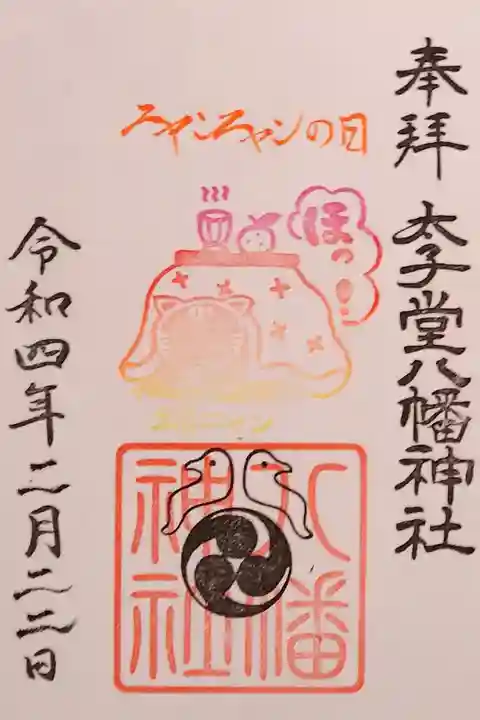 奉拝 太子堂八幡神社
ニャンニャンの日
ほっ!
八幡
神社
令和四年二月二二日